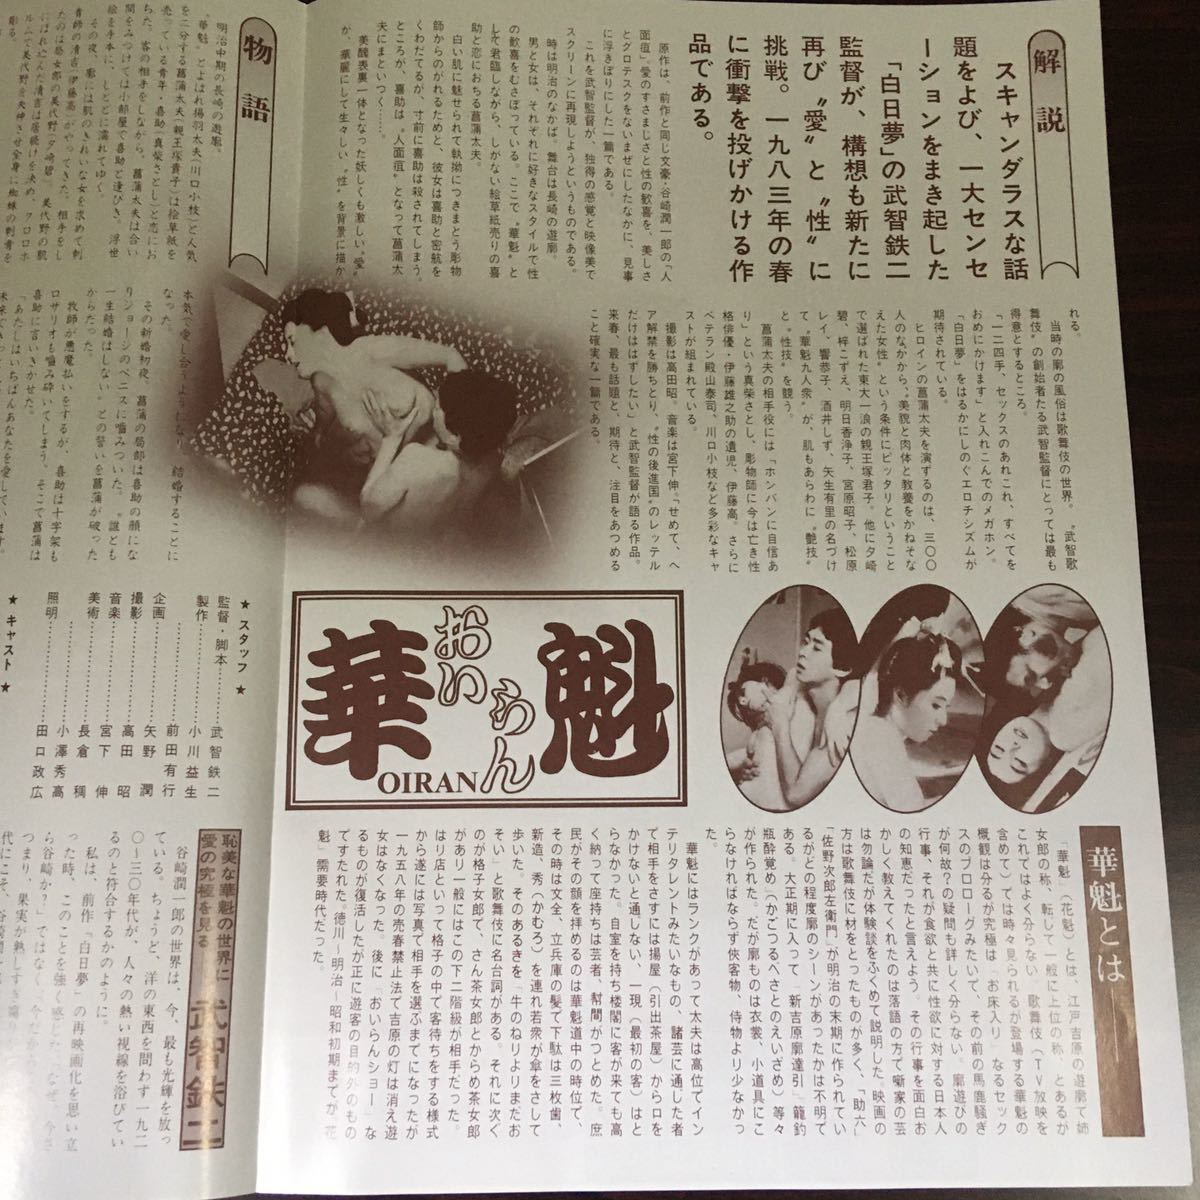 解説
スキャンダラスな話
題をよび、一大センセ
ーションをまき起した
「白日夢」の武智鉄二
監督が、構想も新たに
再び〝愛〟と〝性〟に
挑戦。一九八三年の春
に衝撃を投げかける作
品である。
原作は、前作と同じ文豪・谷崎潤一郎の「人
面疽」。愛のすさまじさと性の歓喜を、美しさ
とグロテスクをないまぜにしたなかに、見事
に浮きぼりにした一篇である。
これを武智監督が、独得の感覚と映像美で
スクリーンに再現しようというものである。
時は明治のなかば。舞台は長崎の遊廓。
男と女は、それぞれに好きなスタイルで性
の歓喜をむさぼっている。ここで〝華魁〟と
して君臨しながら、しがない絵草紙売りの喜
助と恋におちる菖蒲太夫。
白い肌に魅せられて執拗につきまとう彫物
師からのがれるためと、彼女は喜助と密航を
くわだてるが、寸前に喜助は殺されてしまう。
ところが、喜助は〝人面疽〟となって菖蒲太
夫にまといつく……。
美醜表裏一体となった妖しくも激しい〝愛〟
が、華麗にして生々しい〝性〟を背景に描か
れる。
当時の廓の風俗は歌舞伎の世界。〝武智歌
舞伎〟の創始者たる武智監督にとっては最も
得意とするところ。
「一二四手、セックスのあれこれ、すべてを
おめにかけます」と入れこんでのメガホン。
「白日夢」をはるかにしのぐエロチシズムが
期待されている。
ヒロインの菖蒲太夫を演ずるのは、三〇〇
人のなかから〝美貌と肉体と教養をかねそな
えた女性〟という条件にピッタリということ
で選ばれた東大一浪の親王塚君子。他に夕崎
碧、梓こずえ、明日香浄子、宮原昭子、松原
レイ、響恭子、酒井しず、矢生有里の名づけ
て〝華魁九人衆〟が、肌もあらわに〝艶技〟
と〝性技〟を競う。
菖蒲太夫の相手役には「ホンバンに自信あ
り」という真柴さとし、彫物師に今は亡き性
格俳優・伊藤雄之助の遺児、伊藤高。さらに
ベテラン殿山泰司、川口小枝など多彩なキャ
ストが組まれている。
撮影は高田昭。音楽は宮下伸。「せめて、ヘ
ア解禁を勝ちとり、〝性の後進国〟のレッテル
だけははずしたい」と武智監督が語る作品。
来春、最も話題と、期待と、注目をあつめる
こと確実な一篇である。
物語
明治中期の長崎の遊廓。
〝華魁〟とよばれ揚羽太夫(川口小枝)と人気
を二分する菖蒲太夫(親王塚貴子)は絵草紙を
売っている青年・喜助(真柴さとし)と恋にお
ちた。客の相手をしながら、菖蒲太夫は合い
間をみつけては小部屋で喜助と逢びき、浮世
絵を手本に、しとどに濡れてゆく。
その夜、廓には肌のきれいな女を求めて刺
青師の清吉(伊藤高)がやってきた。相手をし
たのは格女郎の美代野(夕崎碧)。美代野の肌
にほれこんだ清吉は居続けを決め、クロロホ
ルムで美代野を失神させ全身に蜘蛛の刺青を
彫る。
本気で愛し合うようになり、結婚することに
なった。
その新婚初夜、菖蒲の局部は喜助の顔にな
りジョージのペニスに嚙みついた。〝誰とも
一生結婚はしない〟との誓いを菖蒲が破った
からだった。
牧師が悪魔払いをするが、喜助は十字架も
ロザリオも嚙み砕いてしまう。そこで菖蒲は
喜助に言いきかせた。
「あたしはいちばんあなたを愛しています。
華魁
おいらん
OIRAN
★スタッフ★
監督・脚本……武智鉄二
製作……小川益生
企画……前田有行
撮影……矢野　潤
高田　昭
音楽……宮下　伸
美術……長倉　稠
照明……小澤秀高
田口政広
★キャスト★
華魁とは
「華魁」(花魁)とは、江戸吉原の遊廓で姉
女郎の称、転して一般に上位の称、とあるが
これではよく分らない。歌舞伎(TV放映を
含めて)では時々見られるが登場する華魁の
概観は分るが究極は「お床入り」なるセック
スのプロローグみたいで、その前の馬鹿騒ぎ
が何故?の疑問も詳しく分らない。廓遊びの
行事、それが食欲と共に性欲に対する日本人
の知恵だったと言えよう。その行事を面白お
かしく教えてくれたのは落語の方で噺家の芸
は勿論だが体験談をふくめて説明した。映画の
方は歌舞伎に材をとったものが多く、「助六」
「佐野次郎左衛門」が明治の末期に作られてい
るがどの程度廓のシーンがあったかは不明で
ある。大正期に入って「新吉原廓達引」「籠釣
瓶酔覚め」(かごつるべさとのえいざめ)等々
が作られた。だが廓ものは衣裳、小道具にこ
らなければならず侠客物、侍物より少なかっ
た。
華魁にはランクがあって太夫は高位でイン
テリタレントみたいなもの、諸芸に通じた者
で相手をさすには揚屋(引出茶屋)から口を
かけないと通しない、一現(最初の客)はと
らなかった。自室を持ち楼閣に客が来ても高
く納って座持ちは芸者、幇間がつとめた。庶
民がその顔を拝めるのは華魁道中の時位で、
その時は文金、立兵庫の髪で下駄は三枚歯、
新造、秀(かむろ)を連れ若衆が傘をさして
歩いた。そのあるきを「牛のねりよりまだお
そい」と歌舞伎に名台詞がある。それに次ぐ
のが格子女郎で、さん茶女郎とからめ茶女郎
があり一般にはこの下二階級が相手だった。
はり店といって格子の中で客待ちをする様式
から遂には写真で相手を選ぶまでになったが
一九五八年の売春禁止法で吉原の灯は消え遊
女はなくなった。後に「おいらんショー」な
るものが復活したが正に遊客の目的外のもの
ですたれた。徳川〜明治〜昭和初期までが〝花
魁〟需要時代だった。
恥美な華魁の世界に
愛の究極を見る
武智鉄二
谷崎潤一郎の世界は、今、最も光輝を放っ
ている。ちょうど、洋の東西を問わず一九二
〇〜三〇年代が、人々の熱い視線を浴びてい
るのと符合するかのように。
私は、前作「白日夢」の再映画化を思い立
った時、このことを強く感じた。「なぜ、今さ
ら谷崎か?」ではなく「今だから